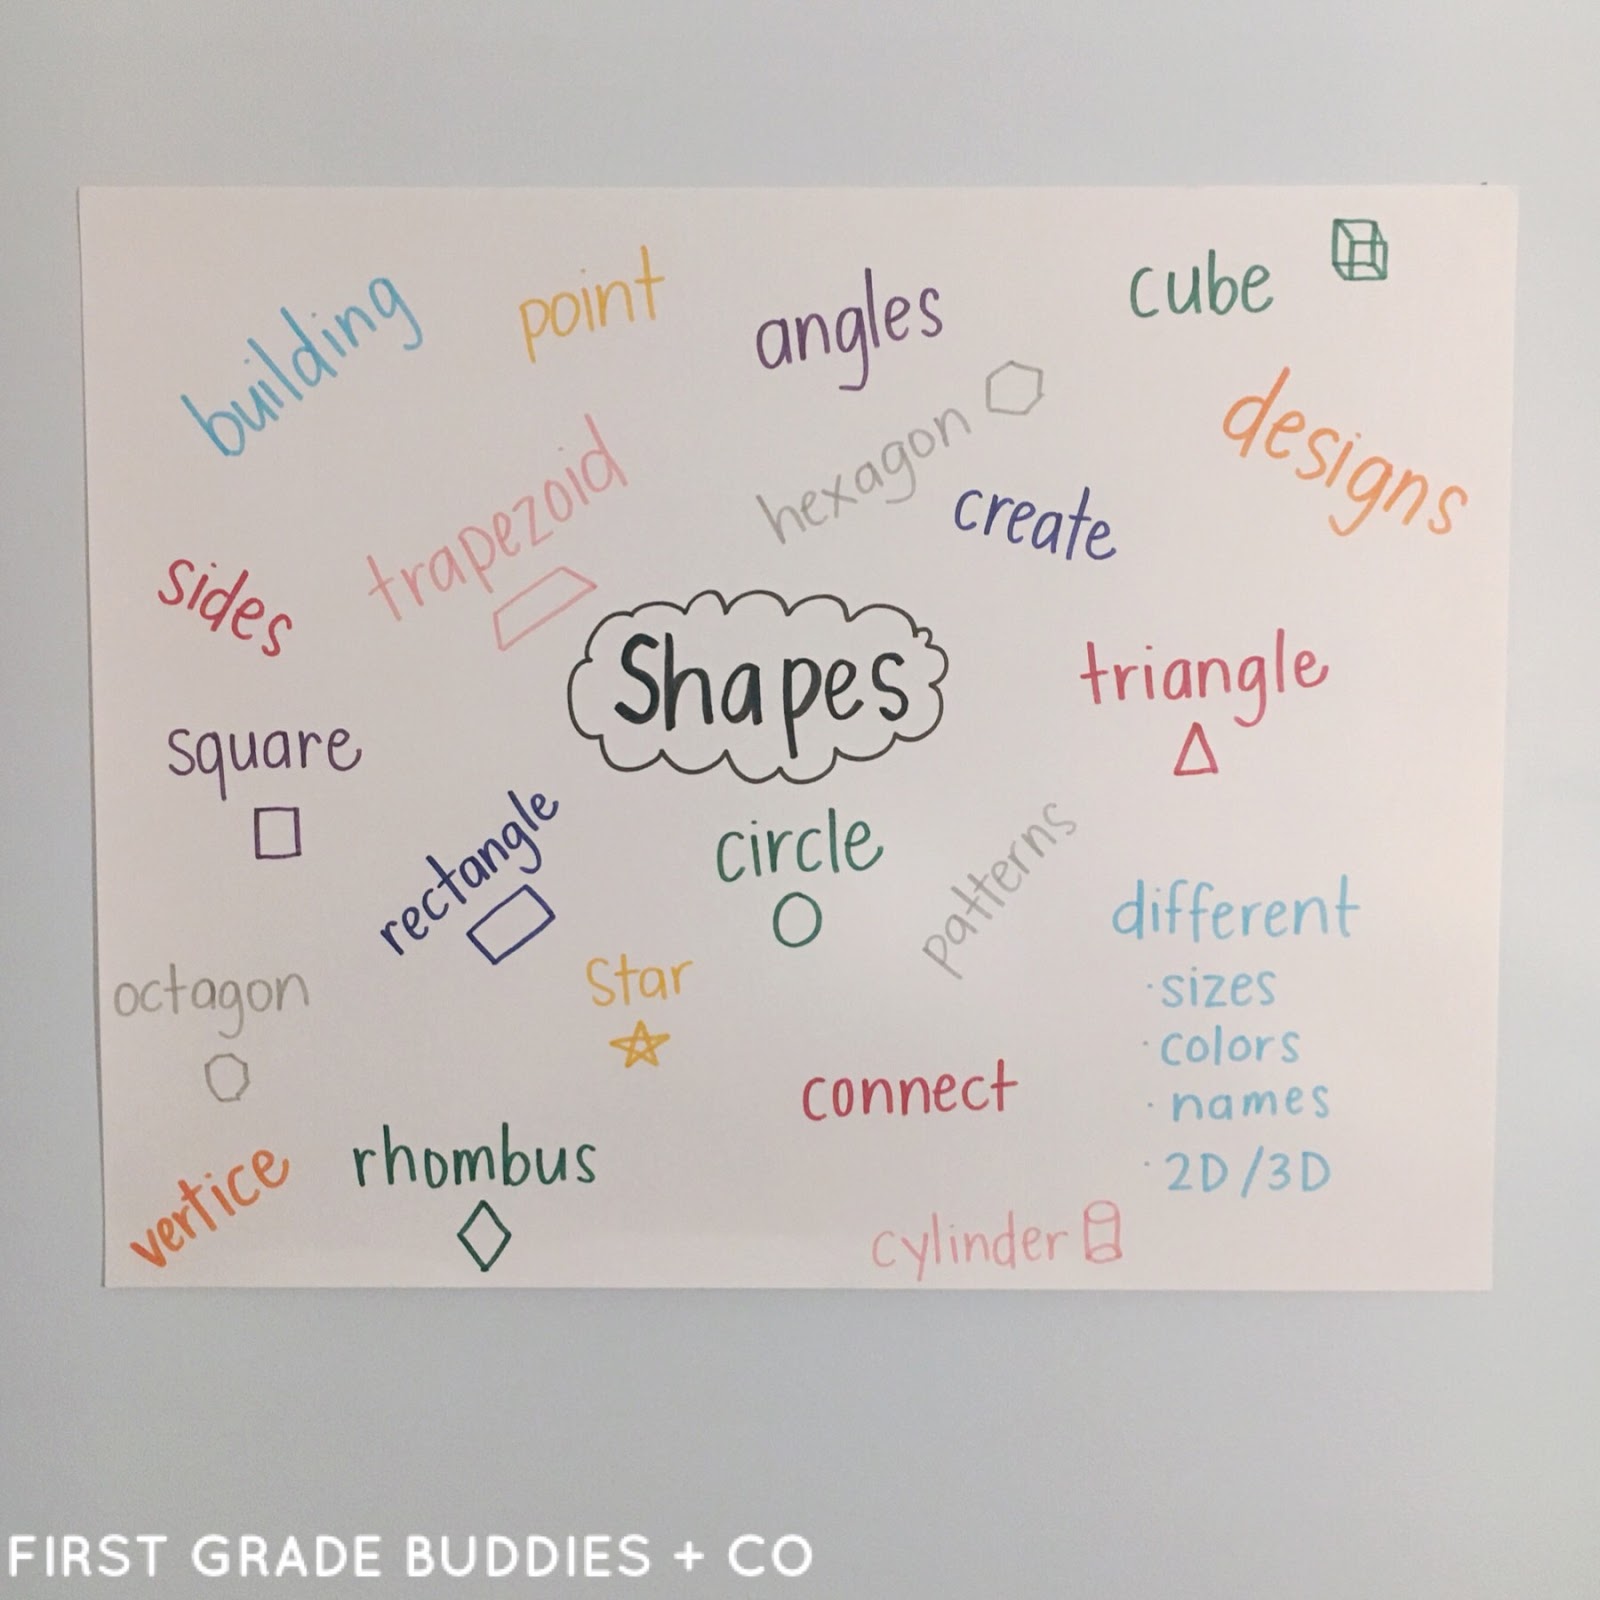 building
point
angles
cube
hexagon
designs
trapezoid
create
sides
Shapes
triangle
square
rectangle
circle
patterns
different
· sizes
· colors
· names
· 2D/3D
octagon
Star
connect
vertice
rhombus
cylinder
FIRST GRADE BUDDIES + CO